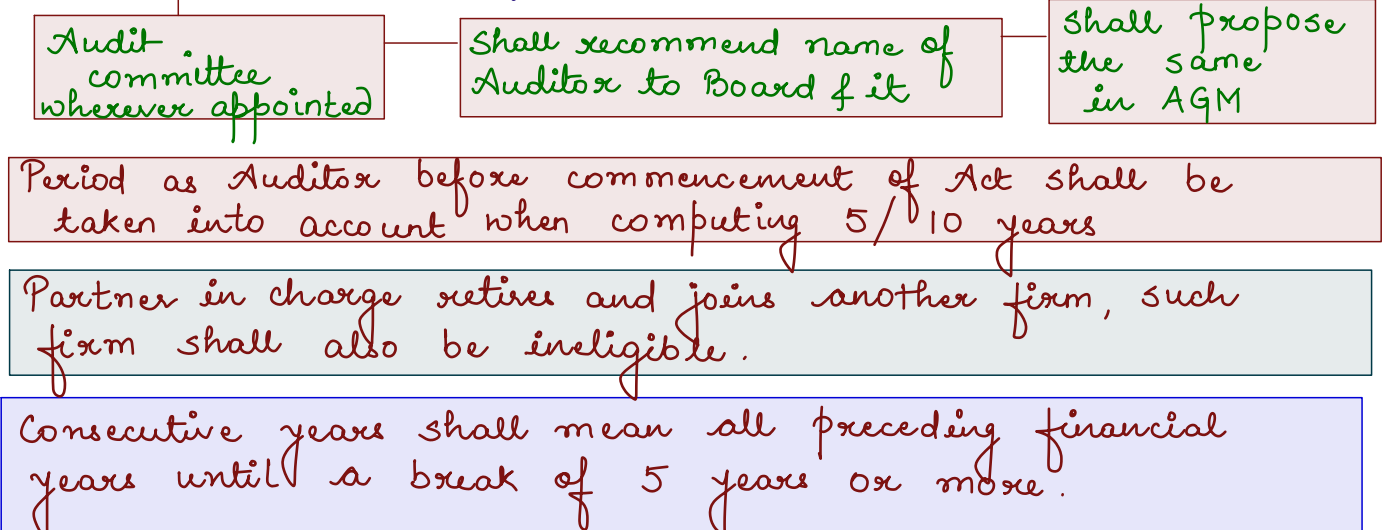 Audit
committee
wherever appointed
Shall recommend name of
Auditor to Board & it
Shall propose
the same
in AGM
Period as Auditor before commencement of Act shall be
taken into account when computing 5/10 years
Partner in charge retires and joins another firm, such
firm shall also be ineligible.
Consecutive years shall mean all preceding financial
years until a break of 5 years or more.